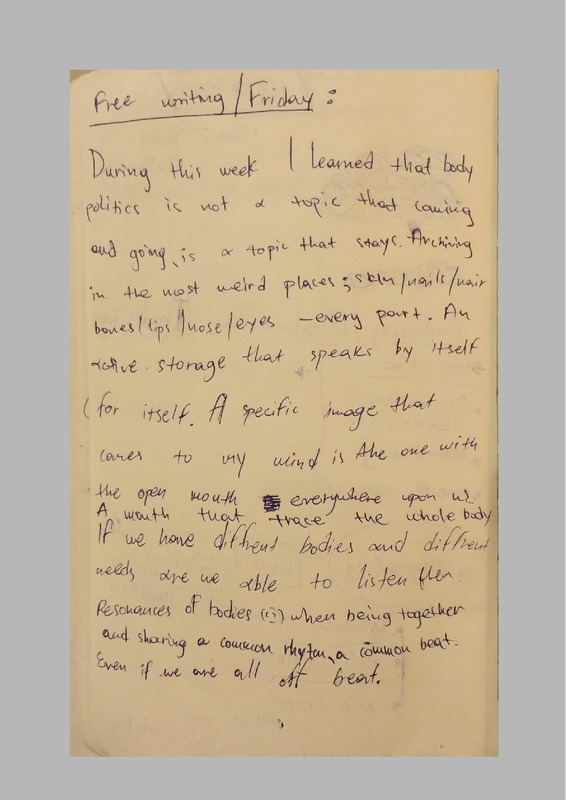 Free writing/Friday:
During this week I learned that body
politics is not a topic that coming
and going, is a topic that stays. Archiving
in the most weird places; skin/nails/hair
bones/lips/nose/eyes - every part. An
active storage that speaks by itself
(for itself. A specific image that
comes to my mind is the one with
the open mouth everywhere upon us
A mouth that trace the whole body
If we have diffrent bodies and diffrent
needs are we able to listen them.
Resonances of bodies when being together
and sharing a common rhytm, a common beat.
Even if we are all off beat.